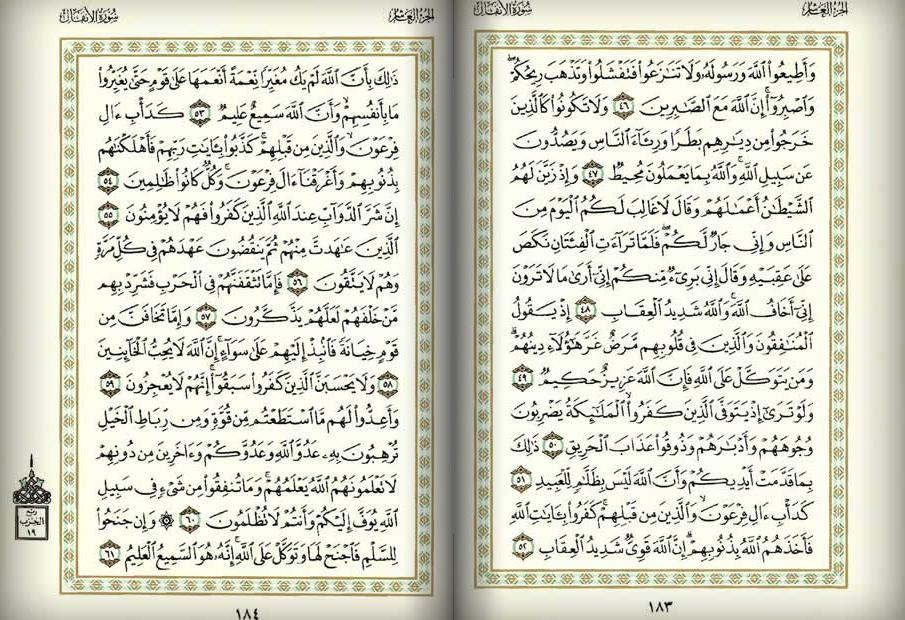 سُورَةُ الأَنفَالِ
الجُزْءُ العَاشِرُ
وَأَطِيعُوا۟ ٱللَّهَ وَرَسُولَهُۥ وَلَا تَنَٰزَعُوا۟ فَتَفْشَلُوا۟ وَتَذْهَبَ رِيحُكُمْ ۖ
وَٱصْبِرُوٓا۟ ۚ إِنَّ ٱللَّهَ مَعَ ٱلصَّٰبِرِينَ ٤٦ وَلَا تَكُونُوا۟ كَٱلَّذِينَ
خَرَجُوا۟ مِن دِيَٰرِهِم بَطَرًا وَرِئَآءَ ٱلنَّاسِ وَيَصُدُّونَ
عَن سَبِيلِ ٱللَّهِ ۚ وَٱللَّهُ بِمَا يَعْمَلُونَ مُحِيطٌ ٤٧ وَإِذْ زَيَّنَ لَهُمُ
ٱلشَّيْطَٰنُ أَعْمَٰلَهُمْ وَقَالَ لَا غَالِبَ لَكُمُ ٱلْيَوْمَ مِنَ
ٱلنَّاسِ وَإِنِّى جَارٌ لَّكُمْ ۖ فَلَمَّا تَرَآءَتِ ٱلْفِئَتَانِ نَكَصَ
عَلَىٰ عَقِبَيْهِ وَقَالَ إِنِّى بَرِىٓءٌ مِّنكُمْ إِنِّىٓ أَرَىٰ مَا لَا تَرَوْنَ
إِنِّىٓ أَخَافُ ٱللَّهَ ۚ وَٱللَّهُ شَدِيدُ ٱلْعِقَابِ ٤٨ إِذْ يَقُولُ
ٱلْمُنَٰفِقُونَ وَٱلَّذِينَ فِى قُلُوبِهِم مَّرَضٌ غَرَّ هَٰٓؤُلَآءِ دِينُهُمْ ۗ
وَمَن يَتَوَكَّلْ عَلَى ٱللَّهِ فَإِنَّ ٱللَّهَ عَزِيزٌ حَكِيمٌ ٤٩
وَلَوْ تَرَىٰٓ إِذْ يَتَوَفَّى ٱلَّذِينَ كَفَرُوا۟ ۙ ٱلْمَلَٰٓئِكَةُ يَضْرِبُونَ
وُجُوهَهُمْ وَأَدْبَٰرَهُمْ وَذُوقُوا۟ عَذَابَ ٱلْحَرِيقِ ٥٠ ذَٰلِكَ
بِمَا قَدَّمَتْ أَيْدِيكُمْ وَأَنَّ ٱللَّهَ لَيْسَ بِظَلَّٰمٍ لِّلْعَبِيدِ ٥١
كَدَأْبِ ءَالِ فِرْعَوْنَ ۙ وَٱلَّذِينَ مِن قَبْلِهِمْ ۚ كَفَرُوا۟ بِـَٔايَٰتِ ٱللَّهِ
فَأَخَذَهُمُ ٱللَّهُ بِذُنُوبِهِمْ ۗ إِنَّ ٱللَّهَ قَوِىٌّ شَدِيدُ ٱلْعِقَابِ ٥٢
١٨٣
سُورَةُ الأَنفَالِ
الجُزْءُ العَاشِرُ
ذَٰلِكَ بِأَنَّ ٱللَّهَ لَمْ يَكُ مُغَيِّرًا نِّعْمَةً أَنْعَمَهَا عَلَىٰ قَوْمٍ حَتَّىٰ يُغَيِّرُوا۟
مَا بِأَنفُسِهِمْ ۙ وَأَنَّ ٱللَّهَ سَمِيعٌ عَلِيمٌ ٥٣ كَدَأْبِ ءَالِ
فِرْعَوْنَ ۙ وَٱلَّذِينَ مِن قَبْلِهِمْ ۚ كَذَّبُوا۟ بِـَٔايَٰتِ رَبِّهِمْ فَأَهْلَكْنَٰهُم
بِذُنُوبِهِمْ وَأَغْرَقْنَآ ءَالَ فِرْعَوْنَ ۚ وَكُلٌّ كَانُوا۟ ظَٰلِمِينَ ٥٤
إِنَّ شَرَّ ٱلدَّوَآبِّ عِندَ ٱللَّهِ ٱلَّذِينَ كَفَرُوا۟ فَهُمْ لَا يُؤْمِنُونَ ٥٥
ٱلَّذِينَ عَٰهَدتَّ مِنْهُمْ ثُمَّ يَنقُضُونَ عَهْدَهُمْ فِى كُلِّ مَرَّةٍ
وَهُمْ لَا يَتَّقُونَ ٥٦ فَإِمَّا تَثْقَفَنَّهُمْ فِى ٱلْحَرْبِ فَشَرِّدْ بِهِم
مَّنْ خَلْفَهُمْ لَعَلَّهُمْ يَذَّكَّرُونَ ٥٧ وَإِمَّا تَخَافَنَّ مِن
قَوْمٍ خِيَانَةً فَٱنۢبِذْ إِلَيْهِمْ عَلَىٰ سَوَآءٍ ۚ إِنَّ ٱللَّهَ لَا يُحِبُّ ٱلْخَآئِنِينَ
٥٨ وَلَا يَحْسَبَنَّ ٱلَّذِينَ كَفَرُوا۟ سَبَقُوٓا۟ ۚ إِنَّهُمْ لَا يُعْجِزُونَ ٥٩
وَأَعِدُّوا۟ لَهُم مَّا ٱسْتَطَعْتُم مِّن قُوَّةٍ وَمِن رِّبَاطِ ٱلْخَيْلِ
تُرْهِبُونَ بِهِۦ عَدُوَّ ٱللَّهِ وَعَدُوَّكُمْ وَءَاخَرِينَ مِن دُونِهِمْ
لَا تَعْلَمُونَهُمُ ٱللَّهُ يَعْلَمُهُمْ ۚ وَمَا تُنفِقُوا۟ مِن شَىْءٍ فِى سَبِيلِ
ٱللَّهِ يُوَفَّ إِلَيْكُمْ وَأَنتُمْ لَا تُظْلَمُونَ ٦٠ ۞ وَإِن جَنَحُوا۟
لِلسَّلْمِ فَٱجْنَحْ لَهَا وَتَوَكَّلْ عَلَى ٱللَّهِ ۚ إِنَّهُۥ هُوَ ٱلسَّمِيعُ ٱلْعَلِيمُ ٦١
ربع
الحزب
١٩
١٨٤